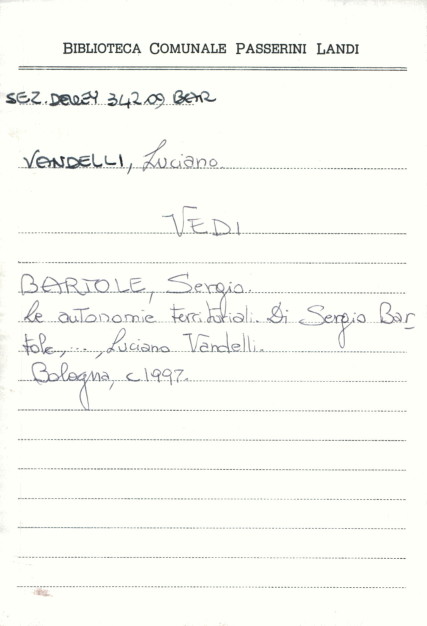 BIBLIOTECA COMUNALE PASSERINI LANDI
SEZ. DEWEY 342.09 BAR
VANDELLI, Luciano.
VEDI
BARTOLE, Sergio.
Le autonomie territoriali. Di Sergio Bar
tole, ..., Luciano Vandelli.
Bologna, c1997.